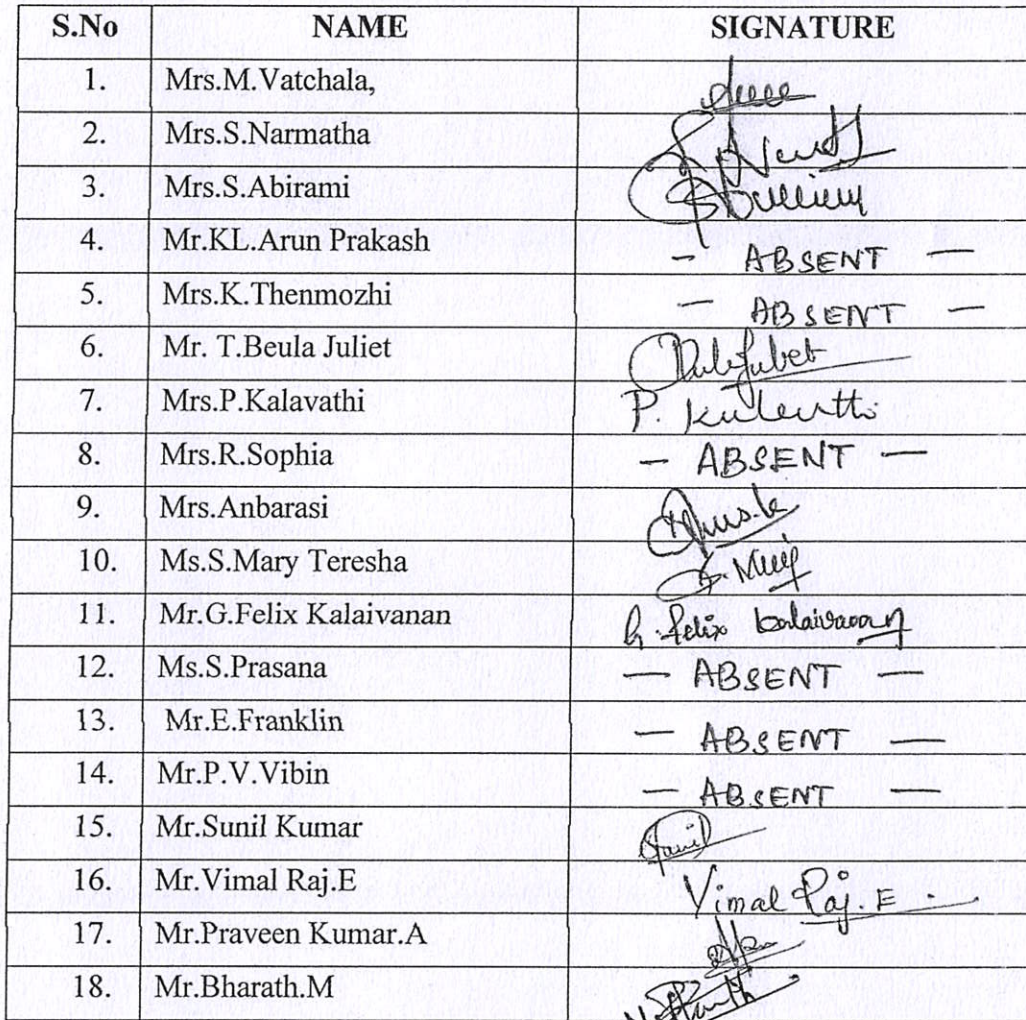 S.No NAME SIGNATURE
1. Mrs.M.Vatchala,
2. Mrs.S.Narmatha
3. Mrs.S.Abirami
4. Mr.KL.Arun Prakash - ABSENT -
5. Mrs.K.Thenmozhi - ABSENT -
6. Mr. T.Beula Juliet
7. Mrs.P.Kalavathi P
8. Mrs.R.Sophia - ABSENT -
9. Mrs.Anbarasi
10. Ms.S.Mary Teresha
11. Mr.G.Felix Kalaivanan G. Felix kalaivanan
12. Ms.S.Prasana - ABSENT -
13. Mr.E.Franklin - ABSENT -
14. Mr.P.V.Vibin - ABSENT -
15. Mr.Sunil Kumar Sunil
16. Mr.Vimal Raj.E Vimal Raj. E
17. Mr.Praveen Kumar.A
18. Mr.Bharath.M